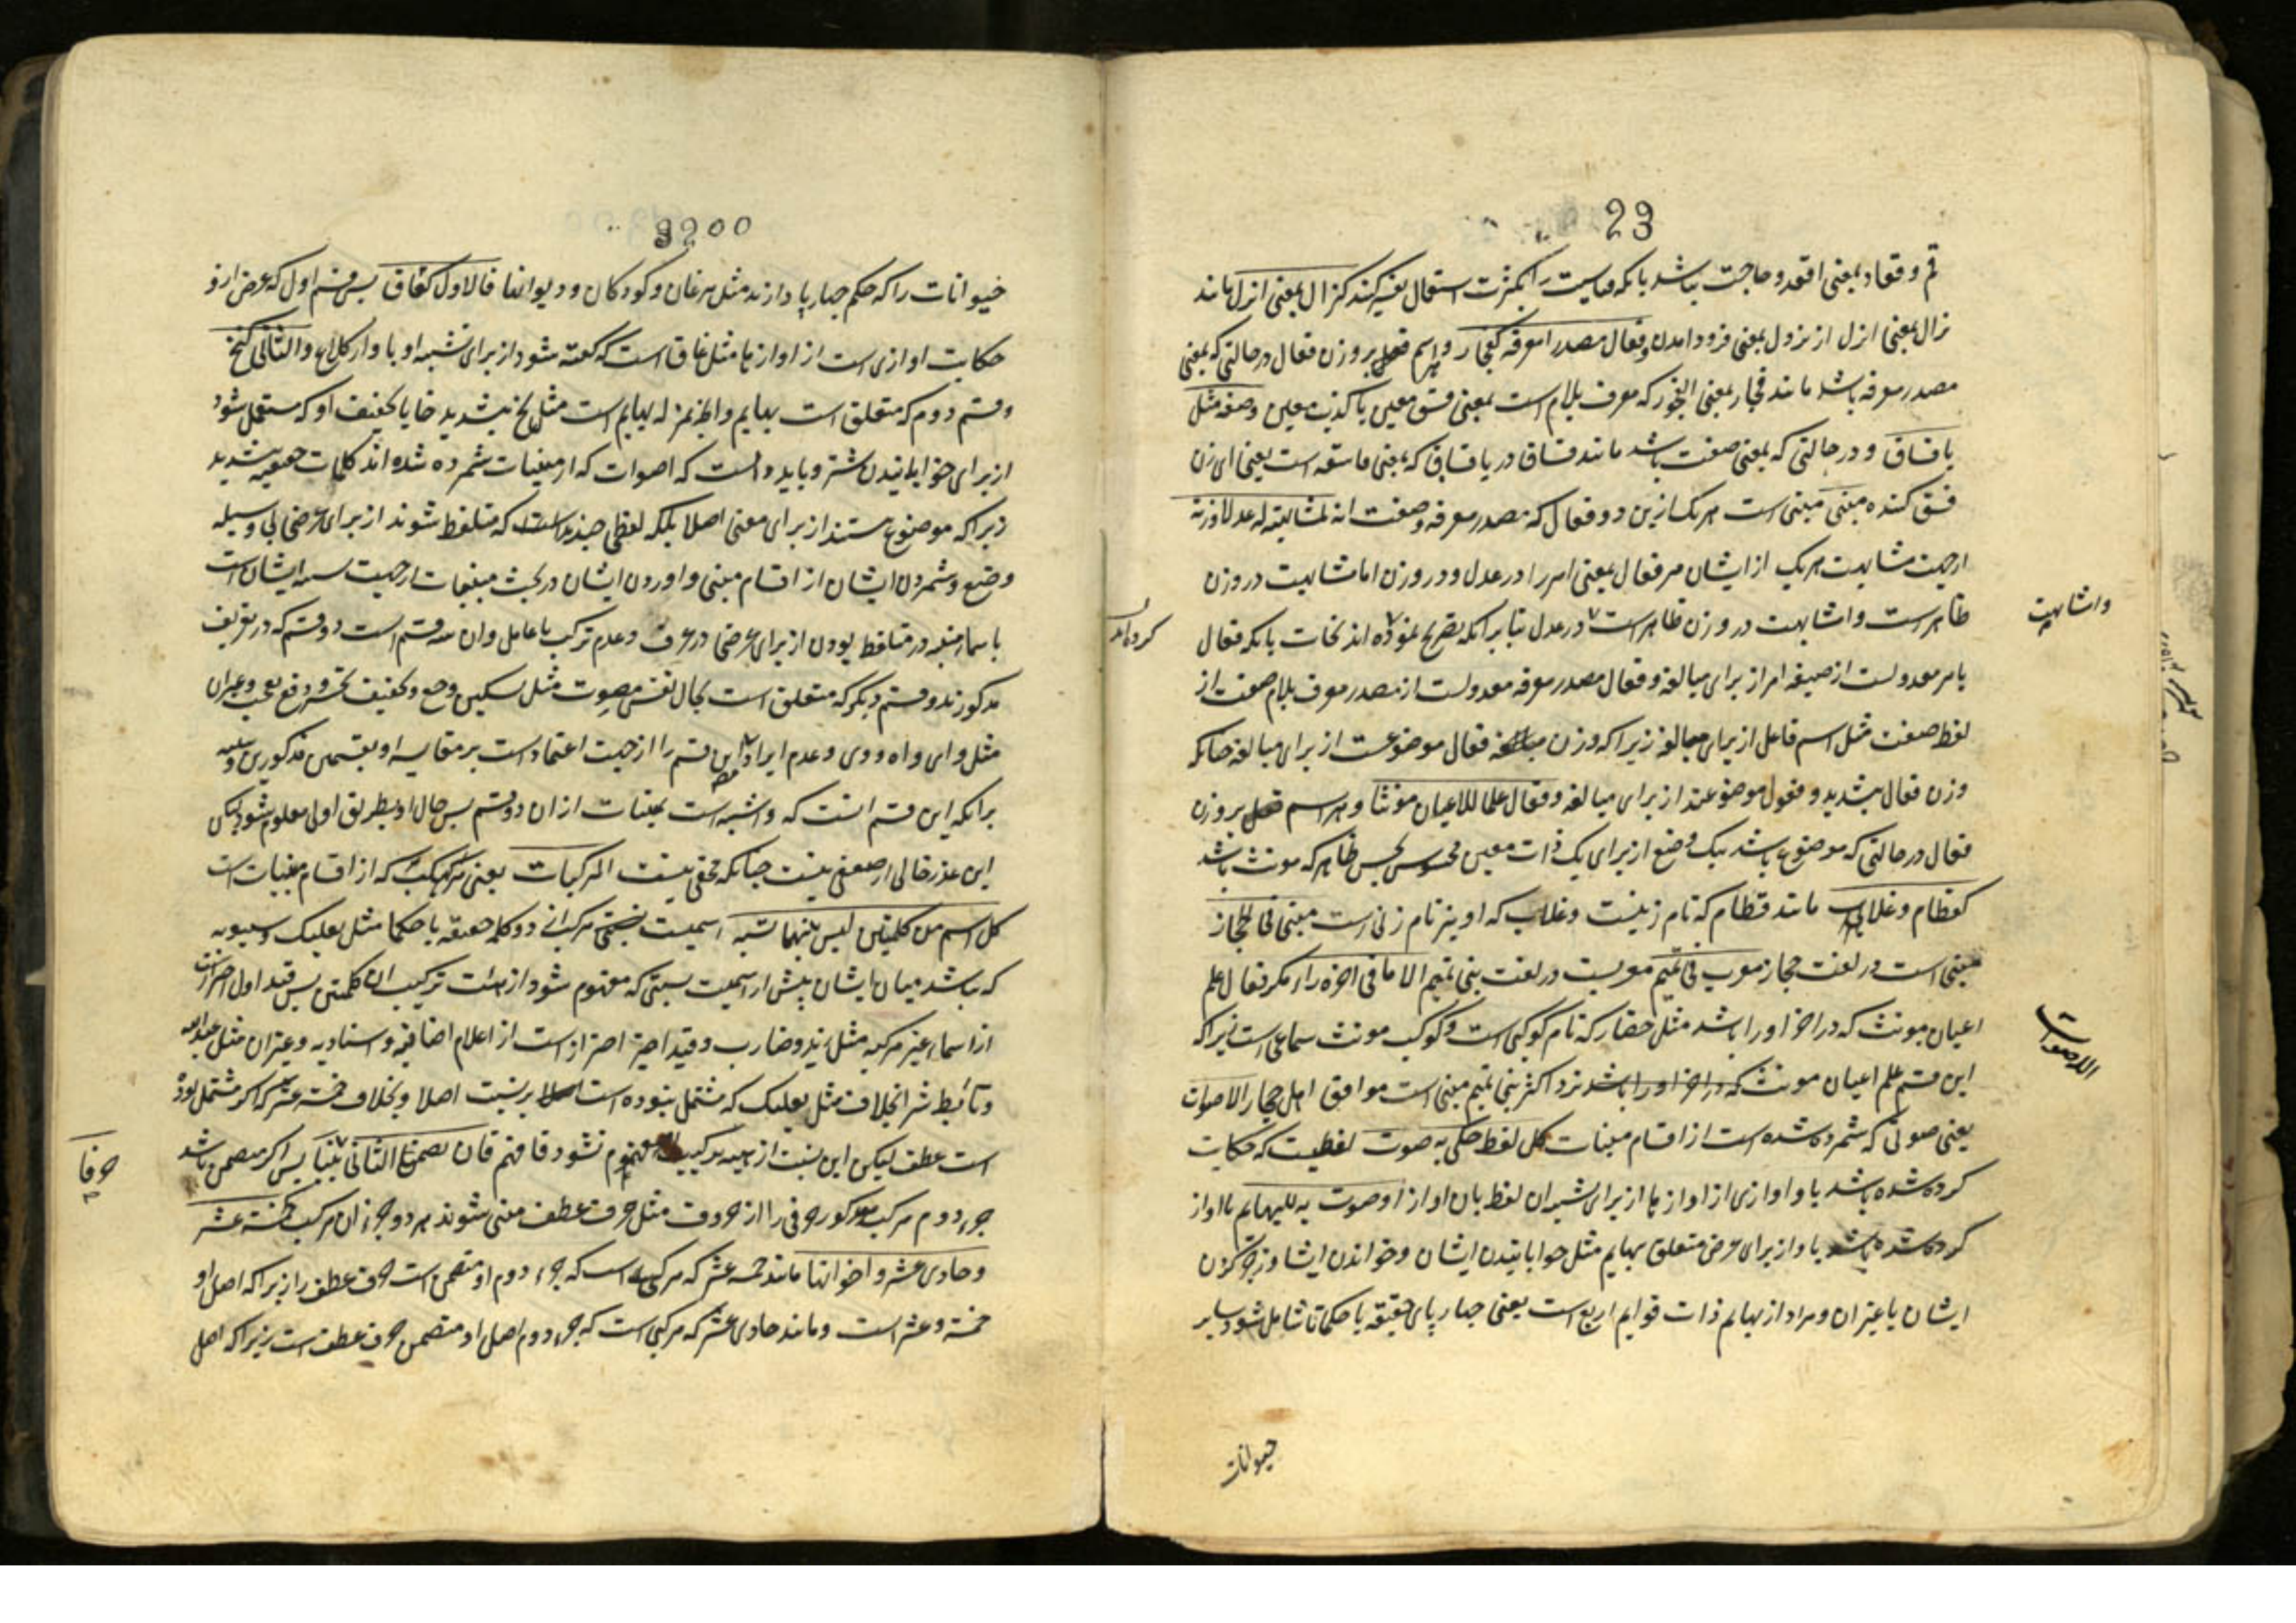 23
قم وقعاد بمعنی اقعد و حاجت باشد بانکه قیاسیت را بکثرت استعمال تفسیر کنند کنزال بمعنی انزل مانند
نزال بمعنی انزل از نزول بمعنی فرود امدن وفعال مصدرا معرفة کفجار و هر اسم بر وزن فعال در حالتی که بمعنی
مصدر معرفه باشد مانند فجار بمعنی الفجور که معرف بلام است بمعنی فسق معین یا کذب معین وصفة مثل
یا فساق و در حالتی که بمعنی صفت باشد مانند فساق در یا فساق که بمعنی فاسقه است یعنی ای زن
فسق کننده مبنی مبنی است هریک ازین دو فعال که مصدر معرفه وصفت اند لمشابهته له عدلا وزنة
ازجهت مشابهت هریک از ایشان مر فعال بمعنی امر را در عدل و در وزن اما مشابهت در وزن
ظاهر است و اشابهت در وزن ظاهر است در عدل بنا برانکه تصریح نموده اند نحات بانکه فعال
یا مر معدولست از صیغه امر از برای مبالغه و فعال مصدر معرفه معدولست از مصدر معرف بلام صفت از
لفظ صفت مثل اسم فاعل از برای مبالغه زیرا که وزن فعال موضوعست از برای مبالغه چنانکه
وزن فعال بتشدید و فعول موضوعند از برای مبالغه وفعال علما للاعیان مونثا و هر اسم بر وزن
فعال در حالتی که موضوع باشد بیک وضع از برای یک ذات معین محسوس بحس ظاهر که مونث باشد
کقطام وغلاب مانند قطام که نام زنیست و غلاب که او نیز نام زنی است مبنی فی الحجاز
مبنی است در لغت حجاز معرب فی تمیم معربست در لغت بنی تمیم الا ما فی اخره راء مکر فعال علم
اعیان مونث که در اخر او را باشد مثل حضار که نام کوکبی است و کوکب مونث سماعی است زیرا که
این قسم علم اعیان مونث که در اخر او را باشد نزد اکثر بنی تمیم مبنی است موافق اهل حجاز الاصوات
یعنی صوتی که شمرده شده است از اقسام مبنیات کل لفظ حکی به صوت لفظیست که حکایت
کرده شده باشد با و اوازی از اوازها از برای تشبیه ان لفظ بان اواز او صوت به للبهایم یا اواز
کرده شده باشد با و از برای غرض متعلق بهایم مثل خوابانیدن ایشان و خواندن ایشان و زجر کردن
ایشان یا غیر ان و مراد از بهایم ذات قوایم اربع است یعنی چهار پای حقیقة یا حکما تا شامل شود سایر
حیوانات
و اشابهت
کرده اند
الاصوات
3200
حیوانات را که حکم چهار پا دارند مثل مرغان و کودکان و دیوانها فالاول کغاق پس قسم اول که غرض ازو
حکایت اوازی است از اوازها مثل غاق است که گفته شود از برای تشبیه او با واز کلاغ والثانی کنخ
و قسم دوم که متعلق است ببهایم است مثل نخ بتشدید خا یا تخفیف او که مستعمل شود
از برای خوابانیدن شتر و باید دانست که اصوات که از مبنیات شمرده شده اند کلمات حقیقیه نیستند
زیرا که موضوع نیستند از برای معنی اصلا بلکه لفظی چندند که متلفظ شوند از برای غرضی بی وسیله
وضع و شمردن ایشان از اقسام مبنی و اوردن ایشان در بحث مبنیات ازجهت ایشان است
باسماء مبنیه در متلفظ بودن از برای غرضی در عرف و عدم ترکیب با عامل و ان سه قسم است دو قسم که در تعریف
مذکورند و قسم دیگر که متعلق است بحال نفس مصوت مثل تسکین وجع و تخفیف تحسر و دفع تعجب و غیر ان
مثل وای و اه و وی و عدم ایراد این قسم را ازجهت اعتماد است بر مقایسه او بقسمین مذکورین و
برانکه این قسم است که و اشبه است بمبنیات از ان دو قسم پس حال او بطریق اولی معلوم شود لیکن
این عذر خالی از ضعفی نیست چنانکه مخفی نیست المرکبات یعنی مرکب که از اقسام مبنیات است
کل اسم من کلمتین لیس بینهما نسبة اسمیست مرکب از دو کلمه حقیقة یا حکما مثل بعلبک و سیبویه
که نباشد میان ایشان پیش از اسمیت نسبتی که مفهوم شود از هیات ترکیب ان کلمتین پس قید اول احتراز است
از اسماء غیر مرکبه مثل زید و ضارب و قید اخیر احتراز است از اعلام اضافیه و اسنادیه و غیر ان مثل عبد الله
و تأبط شرا بخلاف مثل بعلبک که مشتمل نبوده است بر نسبت اصلا و بخلاف خمسة عشر که اکر مشتمل بود
است عطف لیکن این نسبت از هیئه ترکیب مفهوم نشود فافهم فان تضمن الثانی بنیا پس اکر متضمن باشد
جزء دوم مرکب مذکور حرفی را از حروف مثل حرف عطف مبنی شوند هر دو جزء ان مرکب کخمسة عشر
وحادی عشر واخواتها مانند خمسه عشر که مرکبی است که جزء دوم او متضمن است حرف عطف را زیرا که اصل او
خمسة و عشر است و مانند حادی عشر که مرکبی است که جزء دوم اصل او متضمن حرف عطف است زیرا که اصل
حرفا